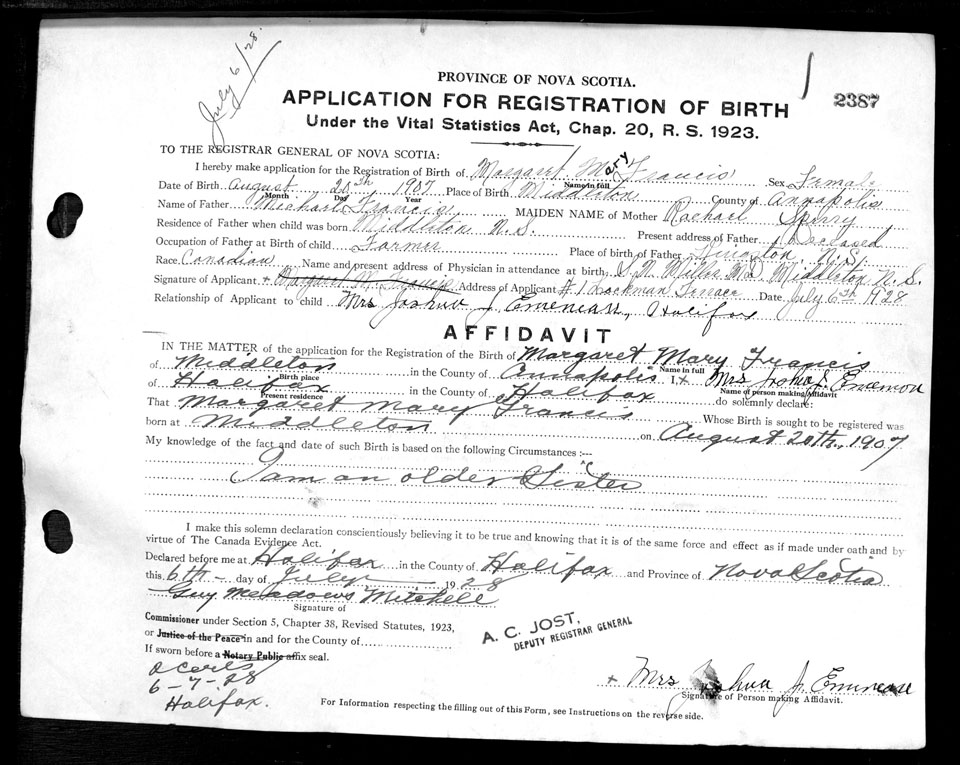 July 6/28.
PROVINCE OF NOVA SCOTIA.
2387
APPLICATION FOR REGISTRATION OF BIRTH
Under the Vital Statistics Act, Chap. 20, R. S. 1923.
TO THE REGISTRAR GENERAL OF NOVA SCOTIA:
I hereby make application for the Registration of Birth of Margaret Mary Francis Sex Female
Name in full
Date of Birth August 20th 1907 Place of Birth Middleton County of Annapolis
Month Day Year
Name of Father Michael Francis MAIDEN NAME of Mother Rachael Sperry
Residence of Father when child was born Middleton N.S. Present address of Father Deceased
Occupation of Father at Birth of child Farmer Place of birth of Father Kingston, N.S.
Race Canadian Name and present address of Physician in attendance at birth, S. N. Miller M.D. Middleton N.S.
Signature of Applicant + Margaret M. Francis Address of Applicant #1 Rockman Terrace Date July 6th 1928
Relationship of Applicant to child Mrs Joshua J. Emeneau, Halifax
AFFIDAVIT
IN THE MATTER of the application for the Registration of the Birth of Margaret Mary Francis
Name in full
of Middleton in the County of Annapolis I, + Mrs Joshua J Emeneau
Birth place
Name of person making Affidavit
of Halifax in the County of Halifax do solemnly declare:
Present residence
That Margaret Mary Francis Whose Birth is sought to be registered was
born at Middleton on August 20th, 1907
My knowledge of the fact and date of such Birth is based on the following Circumstances :--
I am an older Sister
I make this solemn declaration conscientiously believing it to be true and knowing that it is of the same force and effect as if made under oath and by
virtue of The Canada Evidence Act.
Declared before me at Halifax in the County of Halifax and Province of Nova Scotia
this 6th day of July 1928
Guy Meadows Mitchell
Signature of
Commissioner under Section 5, Chapter 38, Revised Statutes, 1923,
or Justice of the Peace in and for the County of
If sworn before a Notary Public affix seal.
A. C. JOST,
DEPUTY REGISTRAR GENERAL
6-7-28
Halifax.
+ Mrs Joshua J. Emeneau
Signature of Person making Affidavit.
For Information respecting the filling out of this Form, see Instructions on the reverse side.